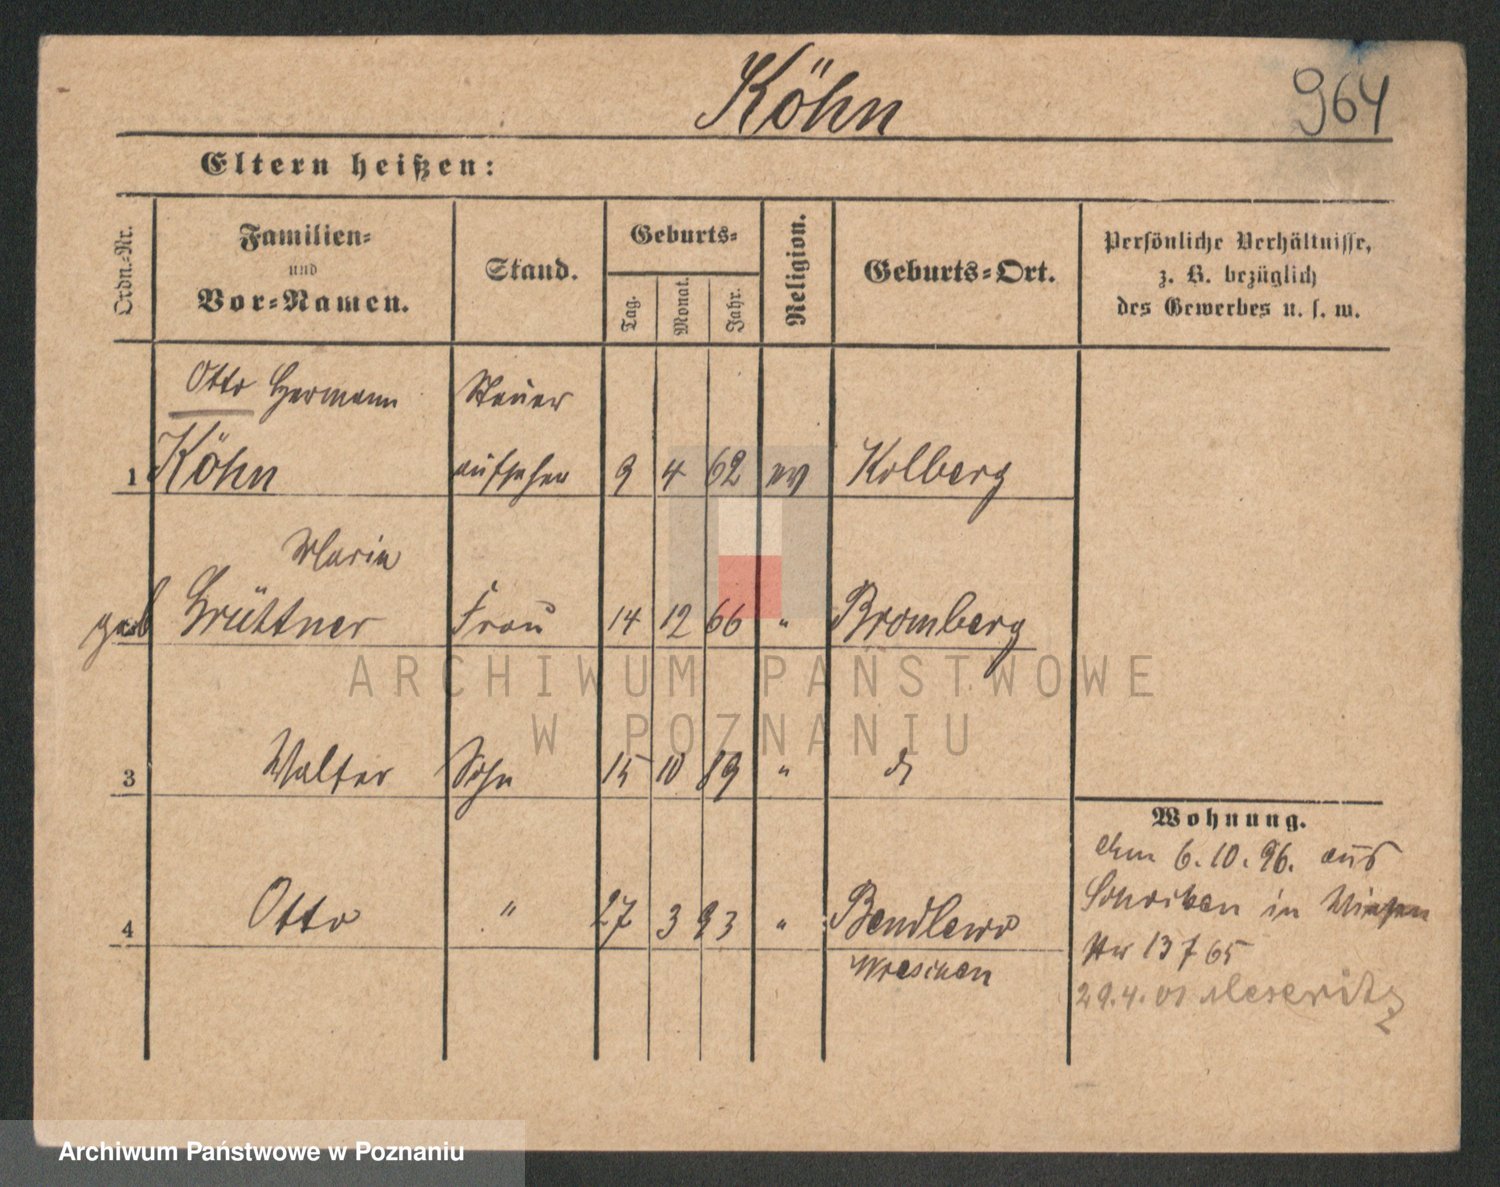 Köhn
964
Eltern heißen:
Ordn.-Nr.
Familien-
und
Vor-Namen.
Stand.
Geburts-
Tag.
Monat.
Jahr.
Religion.
Geburts-Ort.
Persönliche Verhältnisse,
z. B. bezüglich
des Gewerbes u. s. w.
Otto Hermann Steuer
1 Köhn aufseher 9 4 62 ev Kolberg
Marie
geb Grüttner Frau 14 12 66 " Bromberg
ARCHIWUM PAŃSTWOWE
W POZNANIU
3 Walter Sohn 15 10 89 " d
Wohnung.
6.10.96. aus
4 Otto " 27 3 93 " Bendlewo
in
Wreschen
13765
29.4.01 Meseritz
Archiwum Państwowe w Poznaniu